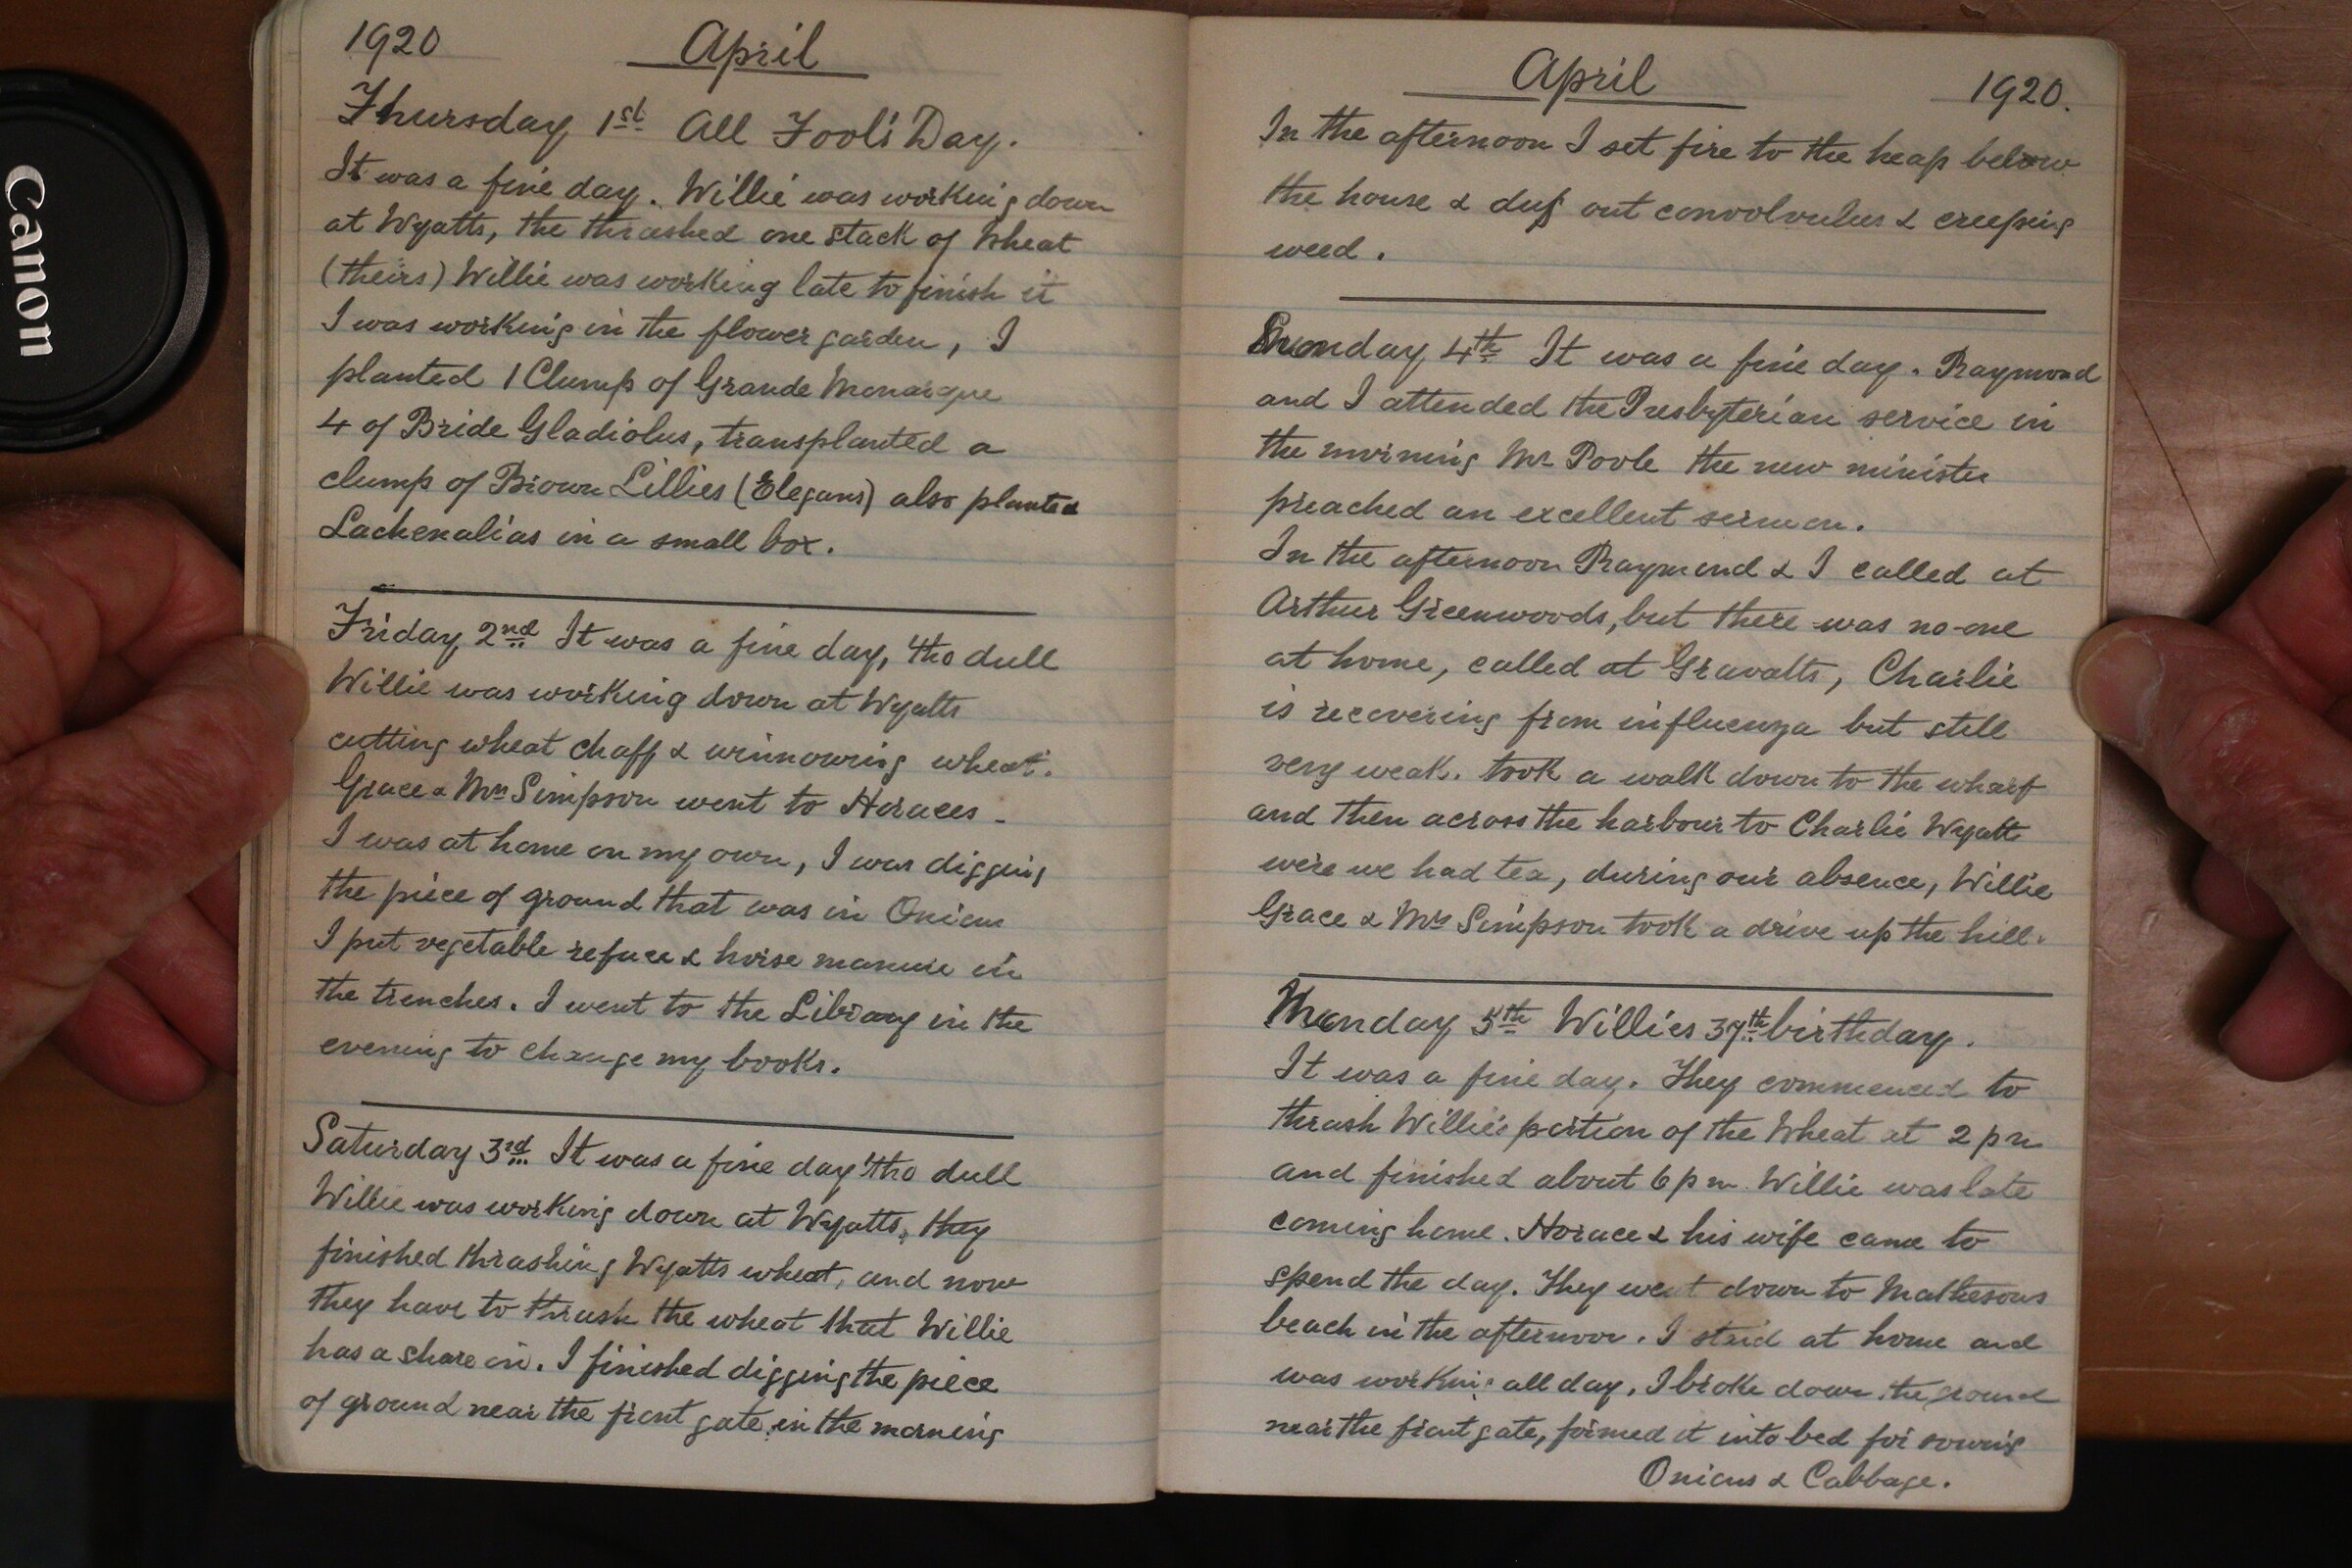 Canon
1920 April
Thursday 1st All Fool's Day.
It was a fine day. Willie was working down
at Wyatts, the thrashed one stack of wheat
(theirs) Willie was working late to finish it
I was working in the flower garden, I
planted 1 Clump of Grande Monarque
4 of Bride Gladiolus, transplanted a
clump of Brown Lillies (Elegans) also planted
Lachenalias in a small box.
Friday 2nd It was a fine day, 'tho dull
Willie was working down at Wyatts
cutting wheat chaff & winnowing wheat.
Grace & Mrs Simpson went to Horaces -
I was at home on my own, I was digging
the piece of ground that was in Onions
I put vegetable refuse & horse manure in
the trenches. I went to the Library in the
evening to change my books.
Saturday 3rd It was a fine day 'tho dull
Willie was working down at Wyatts, they
finished thrashing Wyatts wheat, and now
they have to thrash the wheat that Willie
has a share in. I finished digging the piece
of ground near the front gate in the morning
April 1920.
In the afternoon I set fire to the heap below
the house & dug out convolvulus & creeping
weed.
Sunday 4th It was a fine day. Raymond
and I attended the Presbyterian service in
the morning Mr Poole the new minister
preached an excellent sermon.
In the afternoon Raymond & I called at
Arthur Greenwoods, but there was no-one
at home, called at Gravatts, Charlie
is recovering from influenza but still
very weak. took a walk down to the wharf
and then across the harbour to Charlie Wyatt
were we had tea, during our absence, Willie
Grace & Mrs Simpson took a drive up the hill.
Monday 5th Willies 37th birthday.
It was a fine day. They commenced to
thrash Willie's portion of the wheat at 2 pm
and finished about 6 pm. Willie was late
coming home. Horace & his wife came to
spend the day. They went down to Mathesons
beach in the afternoon. I staid at home and
was working all day, I broke down the ground
near the front gate, formed it into bed for sowing
Onions & Cabbage.